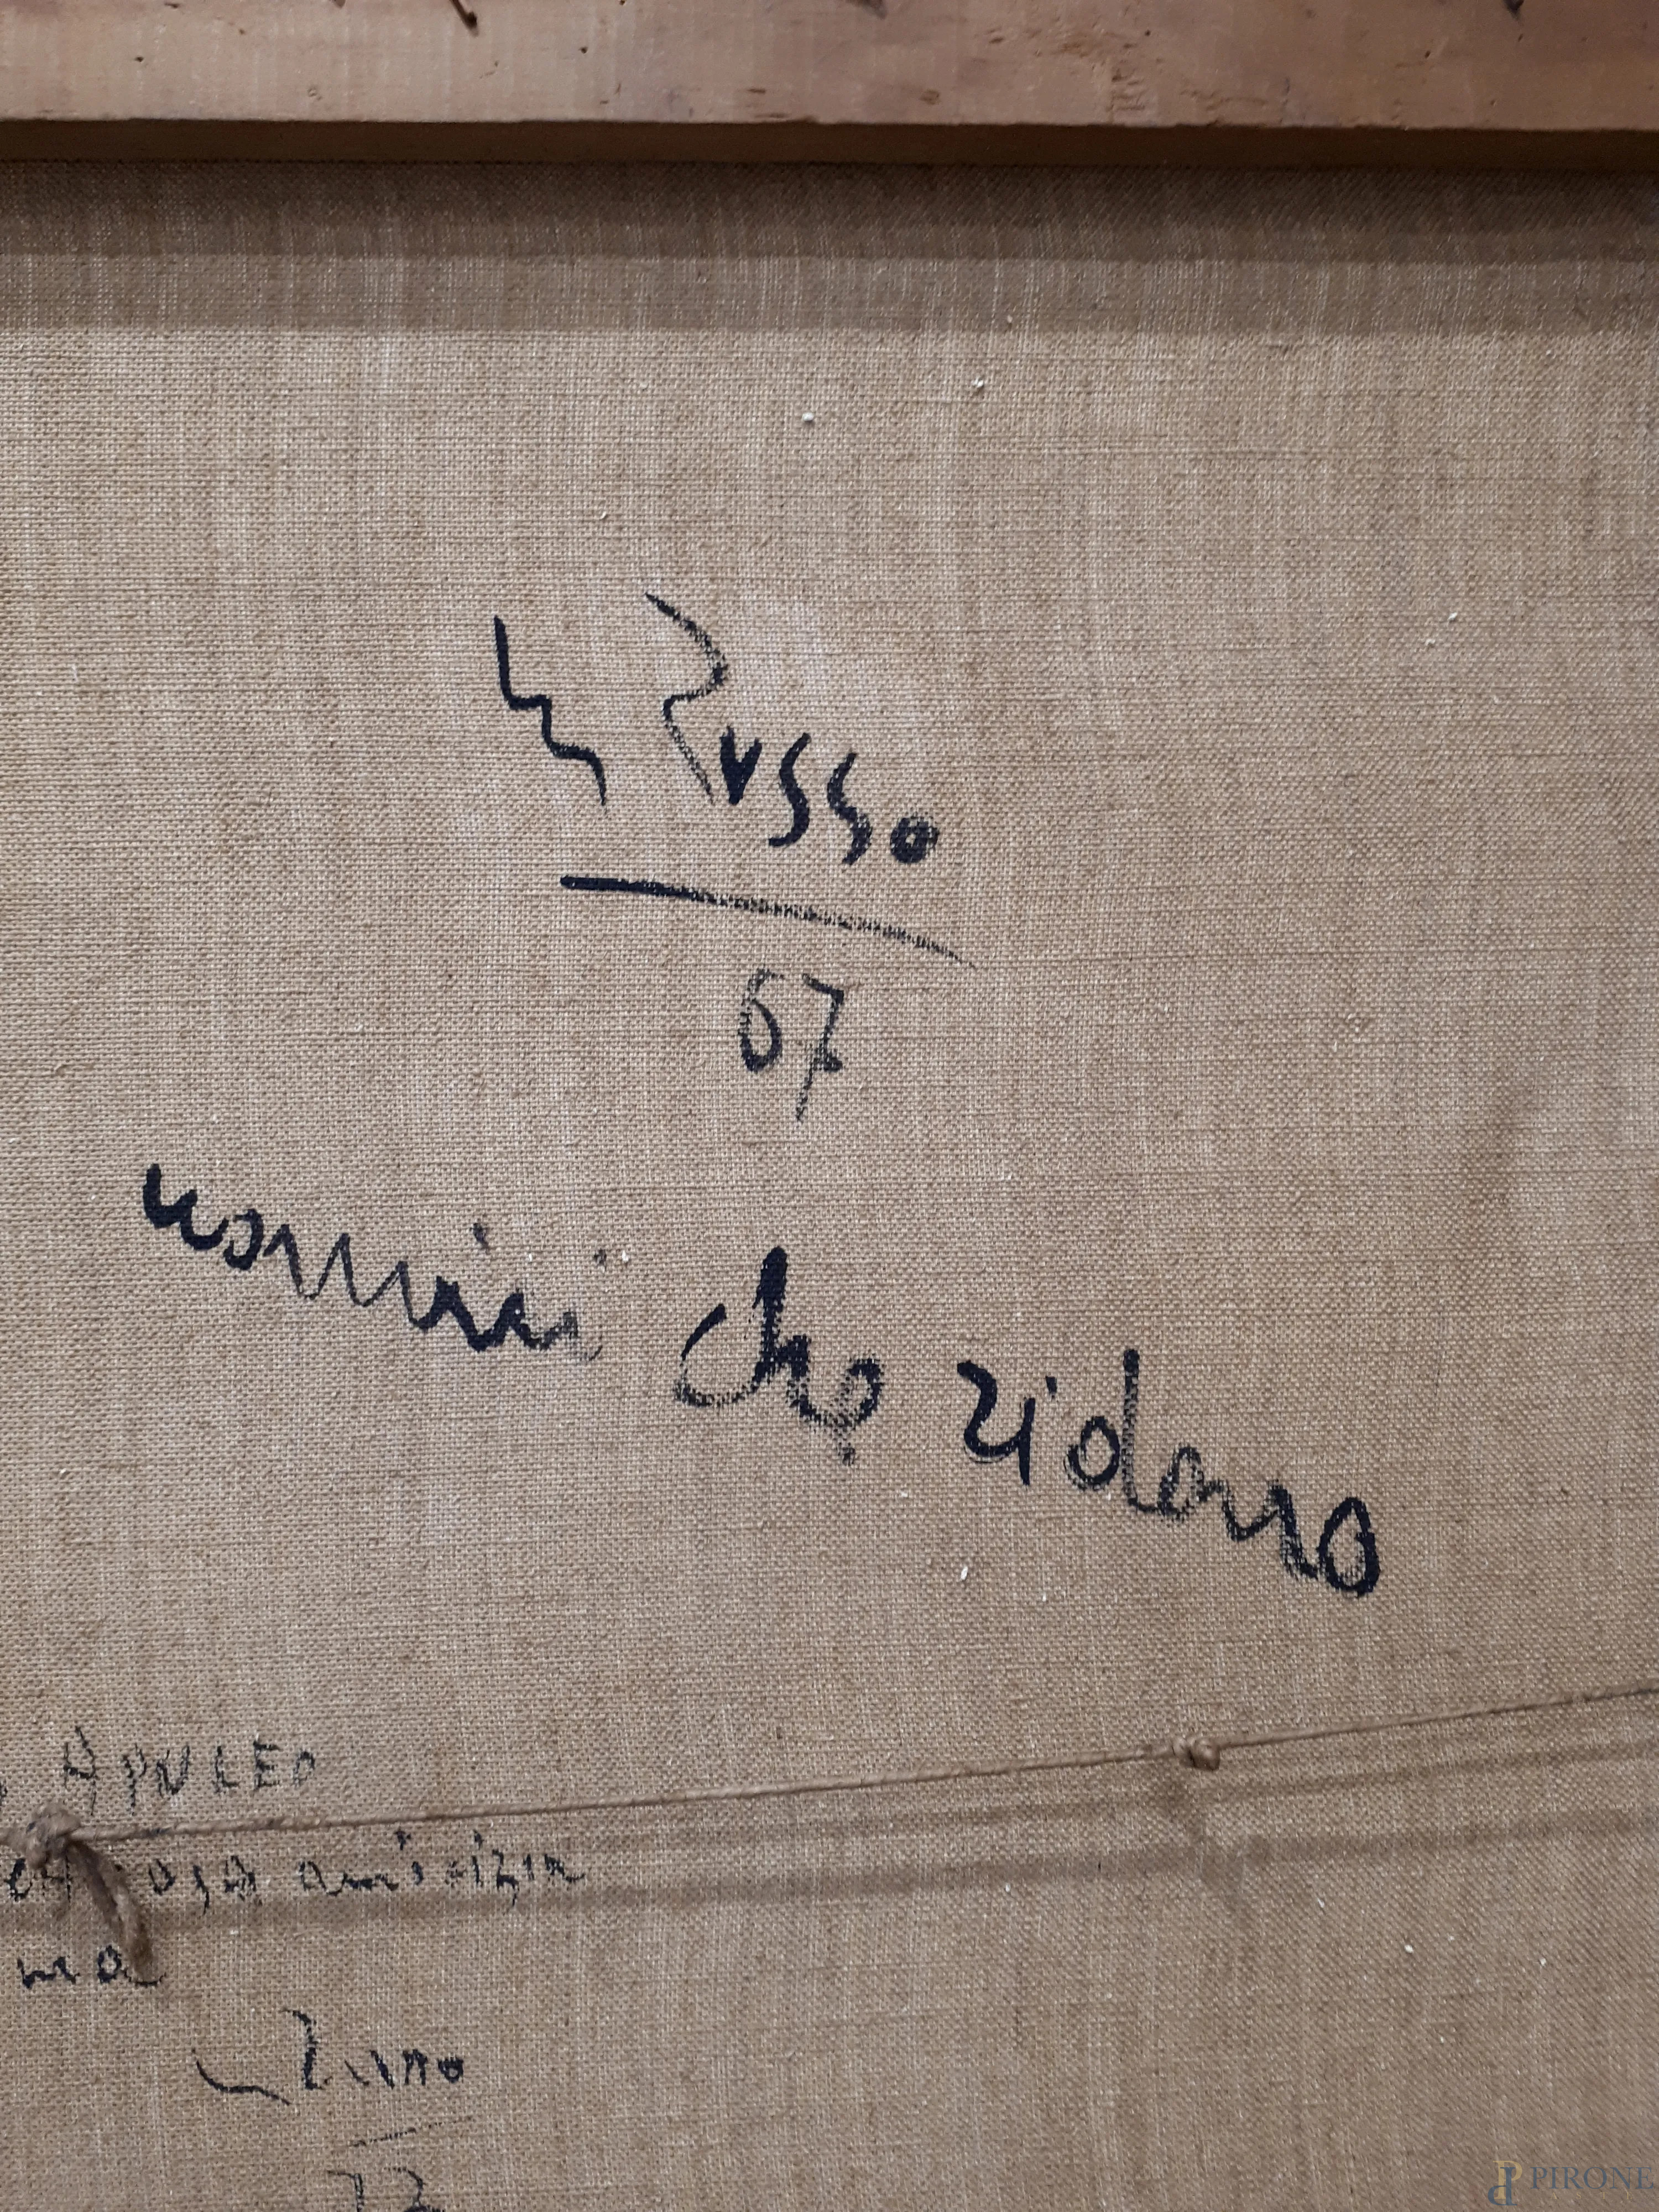 Russo
67
uomini che ridono
APULEO
amicizia
ma
Russo
73
PIRONE